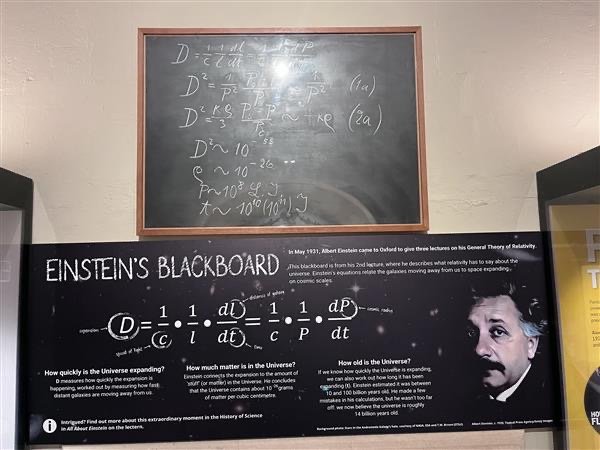 D = 1/c 1/l dl/dt = 1/c 1/P dP/dt
D² = 1/P² P₀-P/P ~ 1/P² (1a)
D² = κρ/3 P₀-P/P₀ ~ κρ (2a)
D² ~ 10⁻⁵³
ρ ~ 10⁻²⁶
P ~ 10⁸ L. J.
t ~ 10¹⁰ (10¹¹) J
EINSTEIN'S BLACKBOARD
In May 1931, Albert Einstein came to Oxford to give three lectures on his General Theory of Relativity.
This blackboard is from his 2nd lecture, where he describes what relativity has to say about the
universe. Einstein's equations relate the galaxies moving away from us to space expanding,
on cosmic scales.
distance of sphere
expansion D = 1/c • 1/l • dl/dt = 1/c • 1/P • dP/dt cosmic radius
speed of light
time
How quickly is the Universe expanding?
D measures how quickly the expansion is
happening, worked out by measuring how fast
distant galaxies are moving away from us.
How much matter is in the Universe?
Einstein connects the expansion to the amount of
'stuff' (or matter) in the Universe. He concludes
that the Universe contains about 10⁻²⁶ grams
of matter per cubic centimetre.
How old is the Universe?
If we know how quickly the Universe is expanding,
we can also work out how long it has been
expanding (t). Einstein estimated it was between
10 and 100 billion years old. He made a few
mistakes in his calculations, but he wasn't too far
off: we now believe the universe is roughly
14 billion years old.
i
Intrigued? Find out more about this extraordinary moment in the History of Science
in All About Einstein on the lectern.